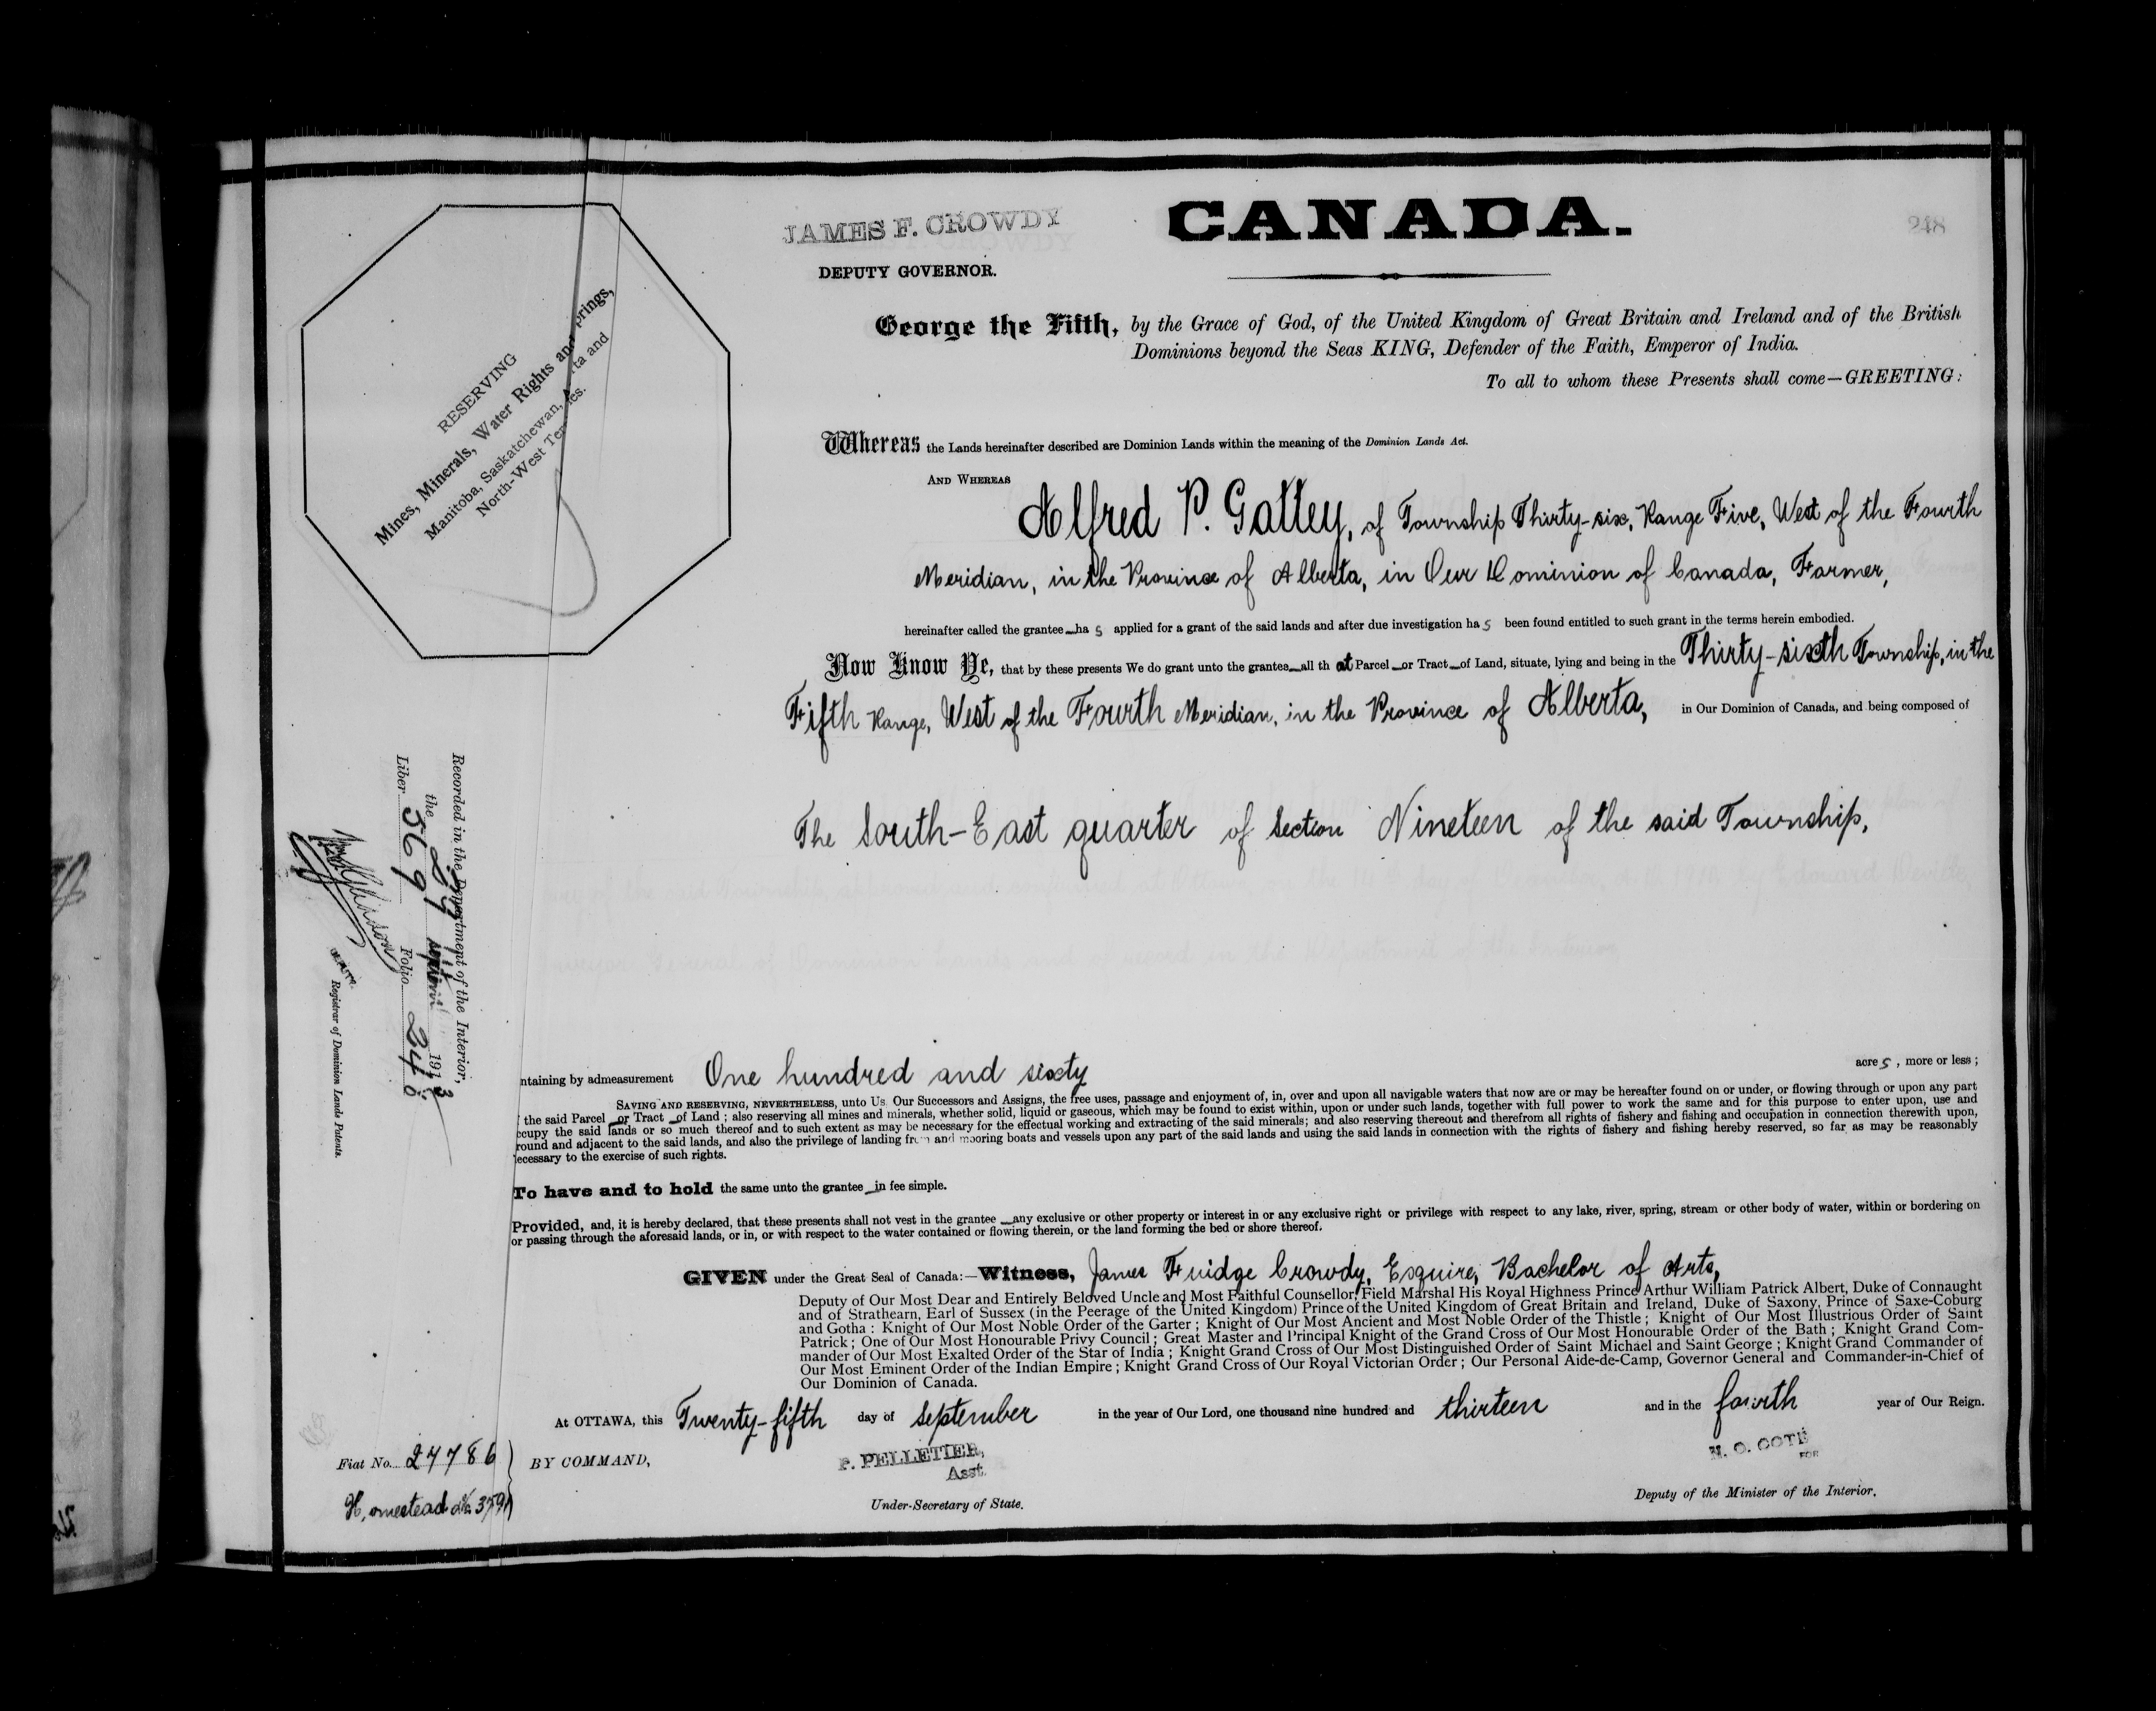 JAMES F. CROWDY
DEPUTY GOVERNOR.
CANADA.
248
RESERVING
Mines, Minerals, Water Rights and prings,
Manitoba, Saskatchewan, A rta and
North-West Ter ies.
George the Fifth, by the Grace of God, of the United Kingdom of Great Britain and Ireland and of the British
Dominions beyond the Seas KING, Defender of the Faith, Emperor of India.
To all to whom these Presents shall come—GREETING:
Whereas the Lands hereinafter described are Dominion Lands within the meaning of the Dominion Lands Act.
AND WHEREAS
Alfred P. Gattey, of Township Thirty-six, Range Five, West of the Fourth
Meridian, in the Province of Alberta, in Our Dominion of Canada, Farmer,
hereinafter called the grantee has applied for a grant of the said lands and after due investigation has been found entitled to such grant in the terms herein embodied.
Now Know Ye, that by these presents We do grant unto the grantee all that Parcel or Tract of Land, situate, lying and being in the Thirty-sixth Township, in the
Fifth Range, West of the Fourth Meridian, in the Province of Alberta, in Our Dominion of Canada, and being composed of
The South-East quarter of Section Nineteen of the said Township,
ntaining by admeasurement One hundred and sixty acres, more or less;
SAVING AND RESERVING, NEVERTHELESS, unto Us Our Successors and Assigns, the free uses, passage and enjoyment of, in, over and upon all navigable waters that now are or may be hereafter found on or under, or flowing through or upon any part
the said Parcel or Tract of Land; also reserving all mines and minerals, whether solid, liquid or gaseous, which may be found to exist within, upon or under such lands, together with full power to work the same and for this purpose to enter upon, use and
ccupy the said lands or so much thereof and to such extent as may be necessary for the effectual working and extracting of the said minerals; and also reserving thereout and therefrom all rights of fishery and fishing and occupation in connection therewith upon,
round and adjacent to the said lands, and also the privilege of landing from and mooring boats and vessels upon any part of the said lands and using the said lands in connection with the rights of fishery and fishing hereby reserved, so far as may be reasonably
ecessary to the exercise of such rights.
To have and to hold the same unto the grantee in fee simple.
Provided, and, it is hereby declared, that these presents shall not vest in the grantee any exclusive or other property or interest in or any exclusive right or privilege with respect to any lake, river, spring, stream or other body of water, within or bordering on
or passing through the aforesaid lands, or in, or with respect to the water contained or flowing therein, or the land forming the bed or shore thereof.
GIVEN under the Great Seal of Canada:—Witness, James Fuidge Crowdy, Esquire, Bachelor of Arts,
Deputy of Our Most Dear and Entirely Beloved Uncle and Most Faithful Counsellor, Field Marshal His Royal Highness Prince Arthur William Patrick Albert, Duke of Connaught
and of Strathearn, Earl of Sussex (in the Peerage of the United Kingdom) Prince of the United Kingdom of Great Britain and Ireland, Duke of Saxony, Prince of Saxe-Coburg
and Gotha: Knight of Our Most Noble Order of the Garter; Knight of Our Most Ancient and Most Noble Order of the Thistle; Knight of Our Most Illustrious Order of Saint
Patrick; One of Our Most Honourable Privy Council; Great Master and Principal Knight of the Grand Cross of Our Most Honourable Order of the Bath; Knight Grand Com-
mander of Our Most Exalted Order of the Star of India; Knight Grand Cross of Our Most Distinguished Order of Saint Michael and Saint George; Knight Grand Commander of
Our Most Eminent Order of the Indian Empire; Knight Grand Cross of Our Royal Victorian Order; Our Personal Aide-de-Camp, Governor General and Commander-in-Chief of
Our Dominion of Canada.
At OTTAWA, this Twenty-fifth day of September in the year of Our Lord, one thousand nine hundred and thirteen and in the fourth year of Our Reign.
Fiat No. 27786
BY COMMAND,
P. PELLETIER,
Asst.
Under-Secretary of State.
N. O. COTÉ
FOR
Deputy of the Minister of the Interior.
Homestead
Recorded in the Department of the Interior,
the 29 1913
Liber 569 Folio 248
DEPUTY
Registrar of Dominion Lands Patents.